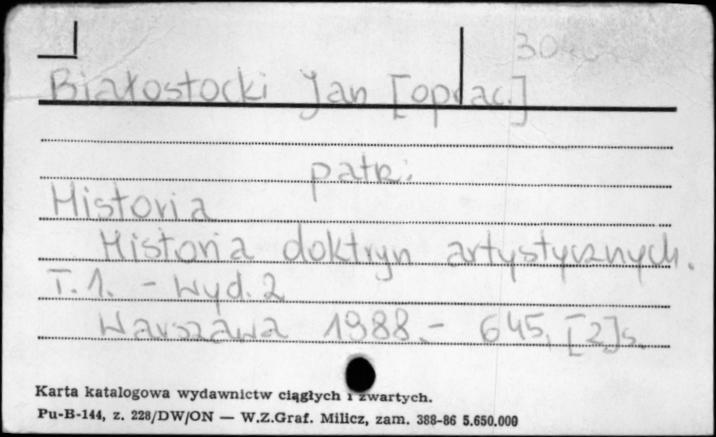 Białostocki Jan [oprac.]
patrz:
Historia
Historia doktryn artystycznych.
T. 1. - Wyd. 2
Warszawa 1988. - 645, [2] s.
Karta katalogowa wydawnictw ciągłych i zwartych.
Pu-B-144, z. 228/DW/ON — W.Z.Graf. Milicz, zam. 388-86 5.650.000